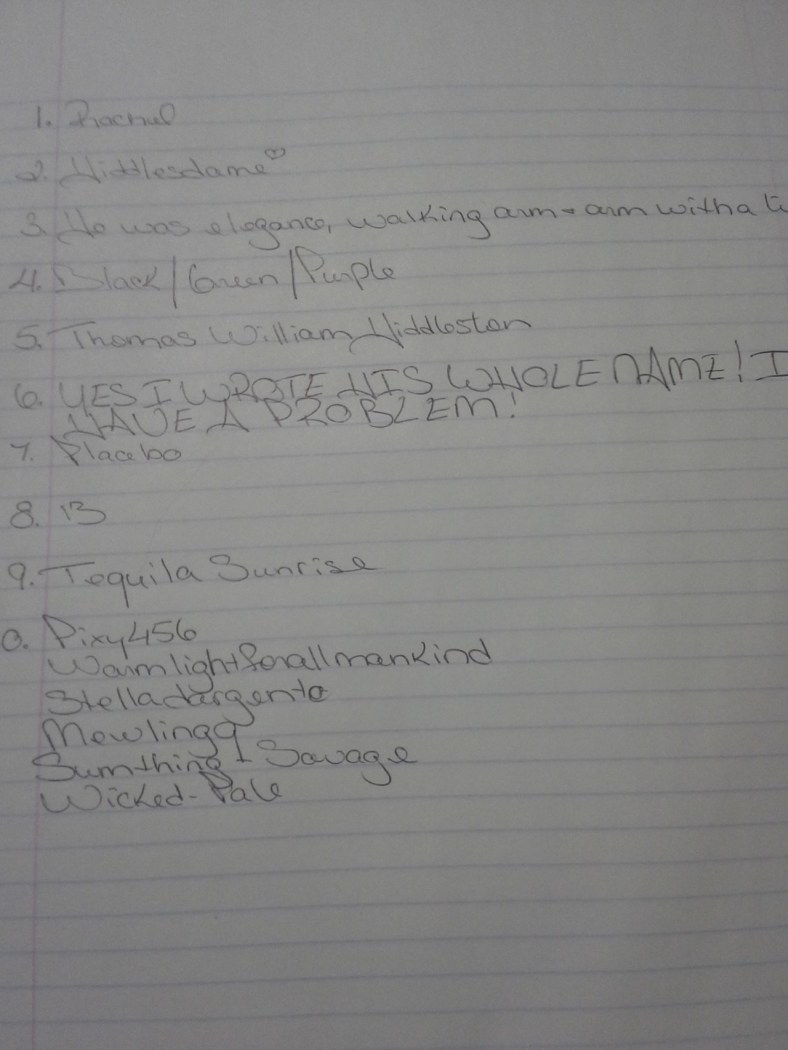 1. Rachul
2. Hiddlesdame♡
3. He was elegance, walking arm + arm with a
4. Black/Green/Purple
5. Thomas William Hiddleston
6. YES I WROTE HIS WHOLE NAME! I
HAVE A PROBLEM!
7. Placebo
8. 13
9. Tequila Sunrise
0. Pixy456
Warmlightforallmankind
Stelladargento
Mewlingq
Sumthing-Savage
Wicked-Pale